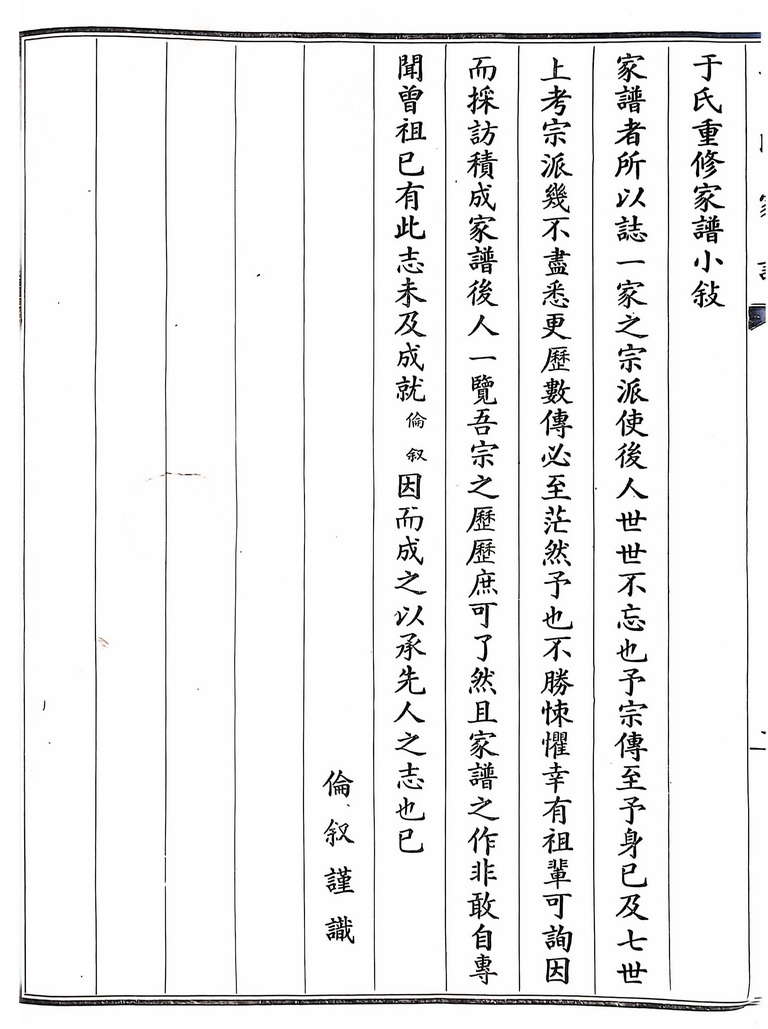 于氏重修家譜小敍
家譜者所以誌一家之宗派使後人世世不忘也予宗傳至予身已及七世
上考宗派幾不盡悉更歷數傳必至茫然予也不勝悚懼幸有祖輩可詢因
而採訪積成家譜後人一覽吾宗之歷歷庶可了然且家譜之作非敢自專
聞曾祖已有此志未及成就倫叙因而成之以承先人之志也已
倫叙謹識